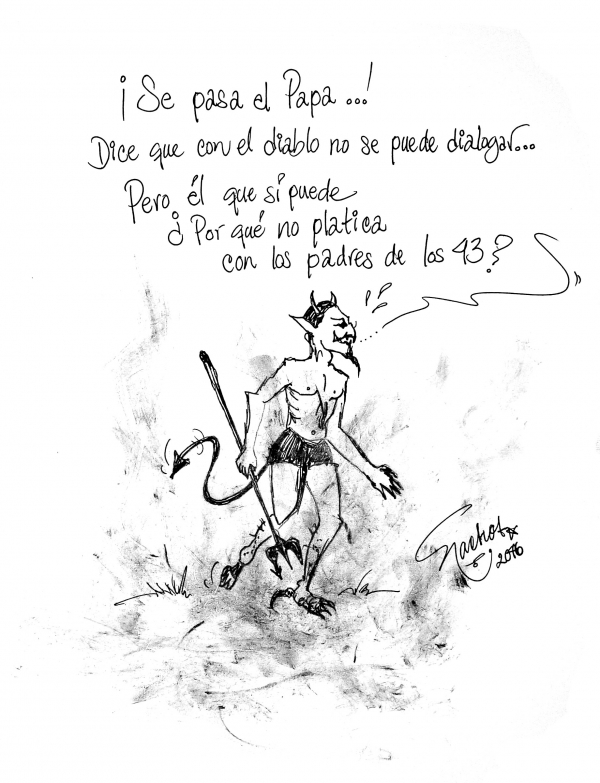 ¡Se pasa el Papa...!
Dice que con el diablo no se puede dialogar...
Pero él que sí puede
¿Por qué no platica
con los padres de los 43?
2016